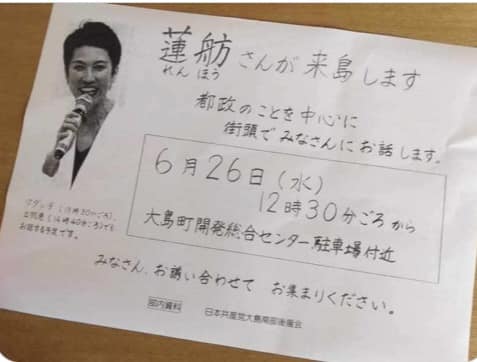 蓮舫さんが来島します
れんほう
都政のことを中心に
街頭でみなさんにお話します。
6月26日(水)
12時30分ごろから
大島町開発総合センター駐車場付近
お話する予定です。
みなさん、お誘い合わせて お集まりください。
部内資料 日本共産党大島南部後援会